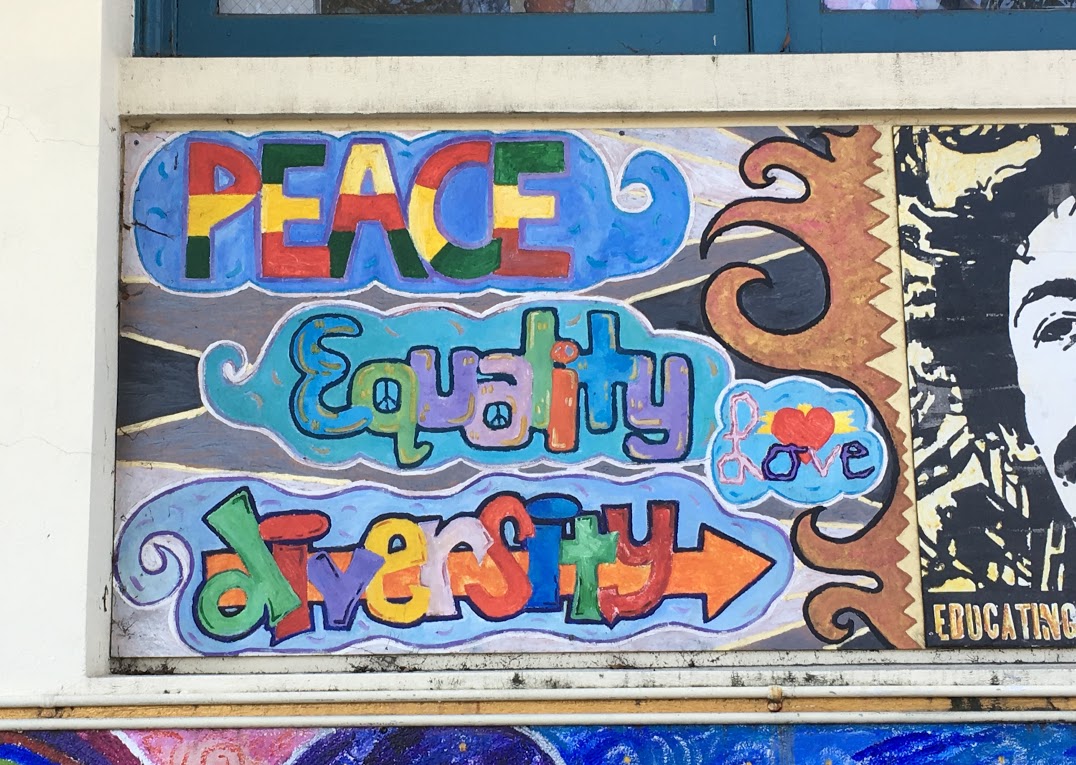 PEACE
Equality
Love
diversity
EDUCATING